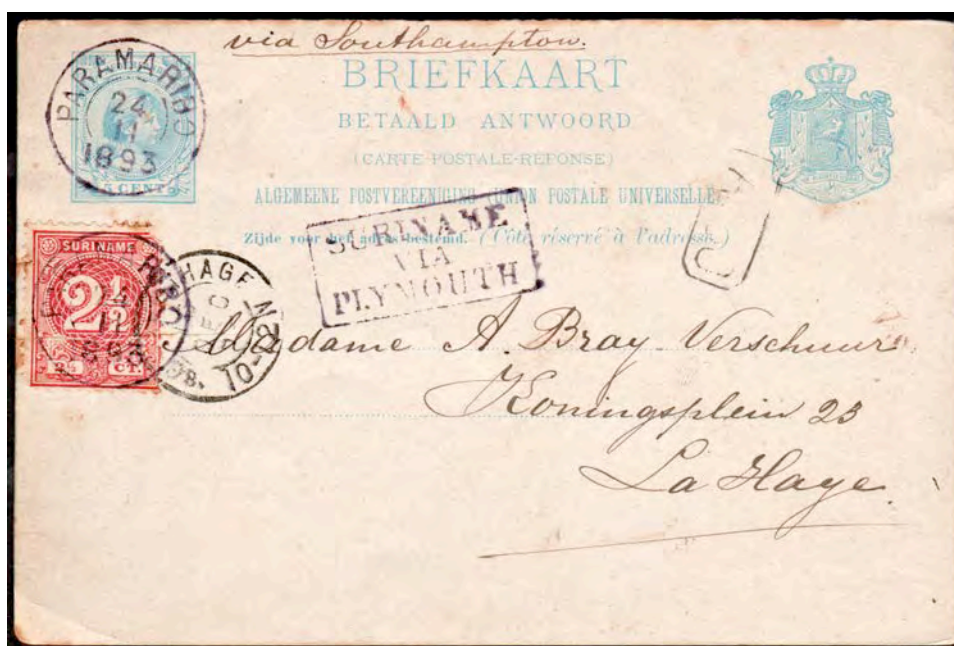 via Southampton.
BRIEFKAART
BETAALD ANTWOORD
(CARTE POSTALE-REPONSE)
ALGEMEENE POSTVEREENIGING (UNION POSTALE UNIVERSELLE)
Zijde voor het adres bestemd. (Côté réservé à l'adresse.)
PARAMARIBO
24
11
1893
5 CENT
SURINAME
VIA
PLYMOUTH
SURINAME
2½
2½ CT.
HAGE
Madame A. Bray-Verschuur
Koningsplein 23
La Haye